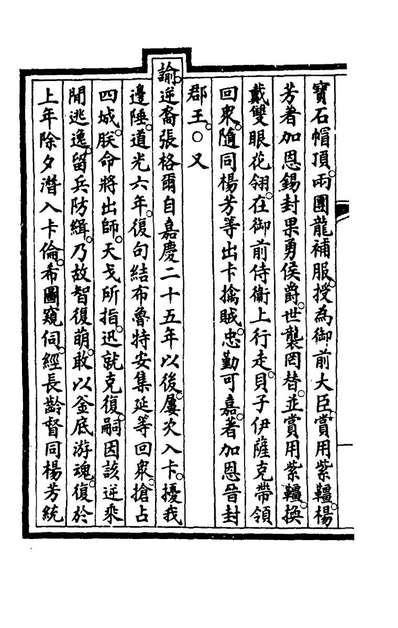 寶石帽頂兩團龍補服授為御前大臣賞用紫韁楊
芳著加恩錫封果勇侯爵世襲罔替並賞用紫韁換
戴雙眼花翎在御前侍衞上行走貝子伊薩克帶領
回衆隨同楊芳等出卡擒賊忠勤可嘉著加恩晉封
郡王○又
諭逆裔張格爾自嘉慶二十五年以後屢次入卡擾我
邊陲道光六年復句結布魯特安集延等回衆搶占
四城朕命將出師天戈所指迅就克復嗣因該逆乘
閒逃逸留兵防緝乃故智復萌敢以釜底游魂復於
上年除夕潛入卡倫布圖窺伺經長齡督同楊芳統